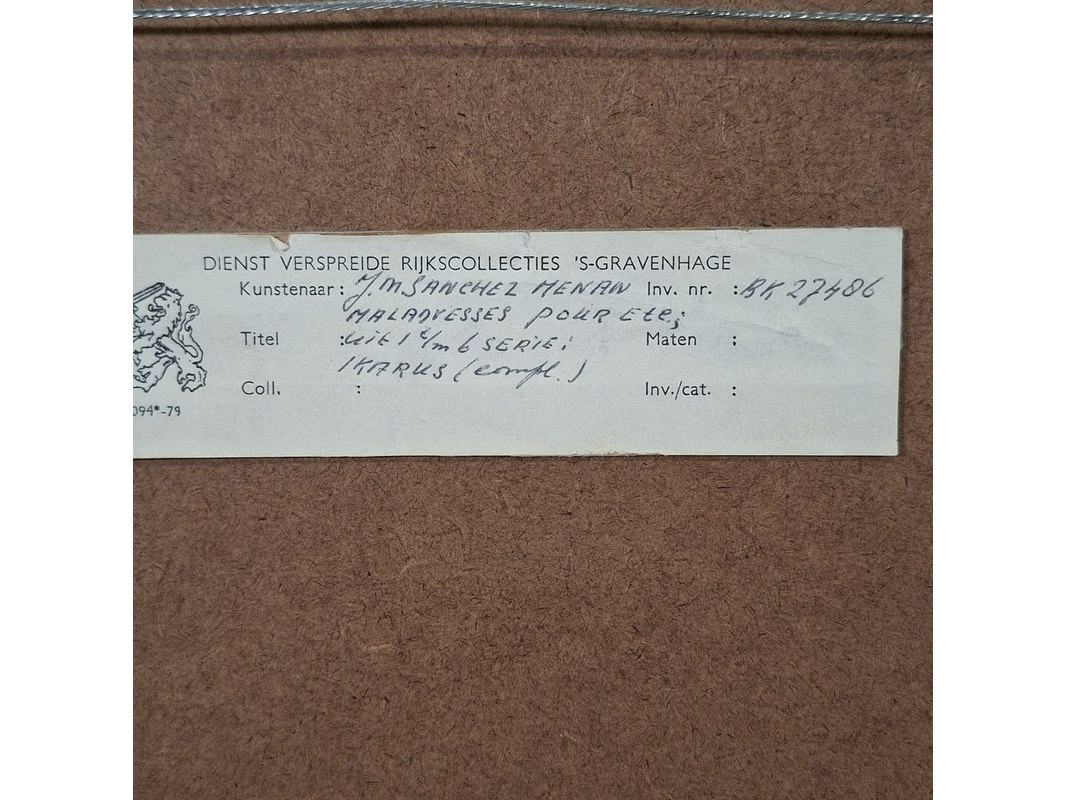 DIENST VERSPREIDE RIJKSCOLLECTIES 'S-GRAVENHAGE
Kunstenaar : J.M SANCHEZ MENAN Inv. nr. : BK 27406
MALADRESSES POUR ETC;
Titel : uit 1 t/m 6 SERIE: Maten :
IKARUS (compl.)
Coll. : Inv./cat. :
094*-79